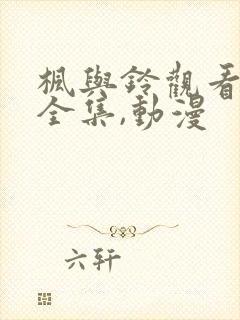 楓與鈴觀看
全集,動漫
六轩